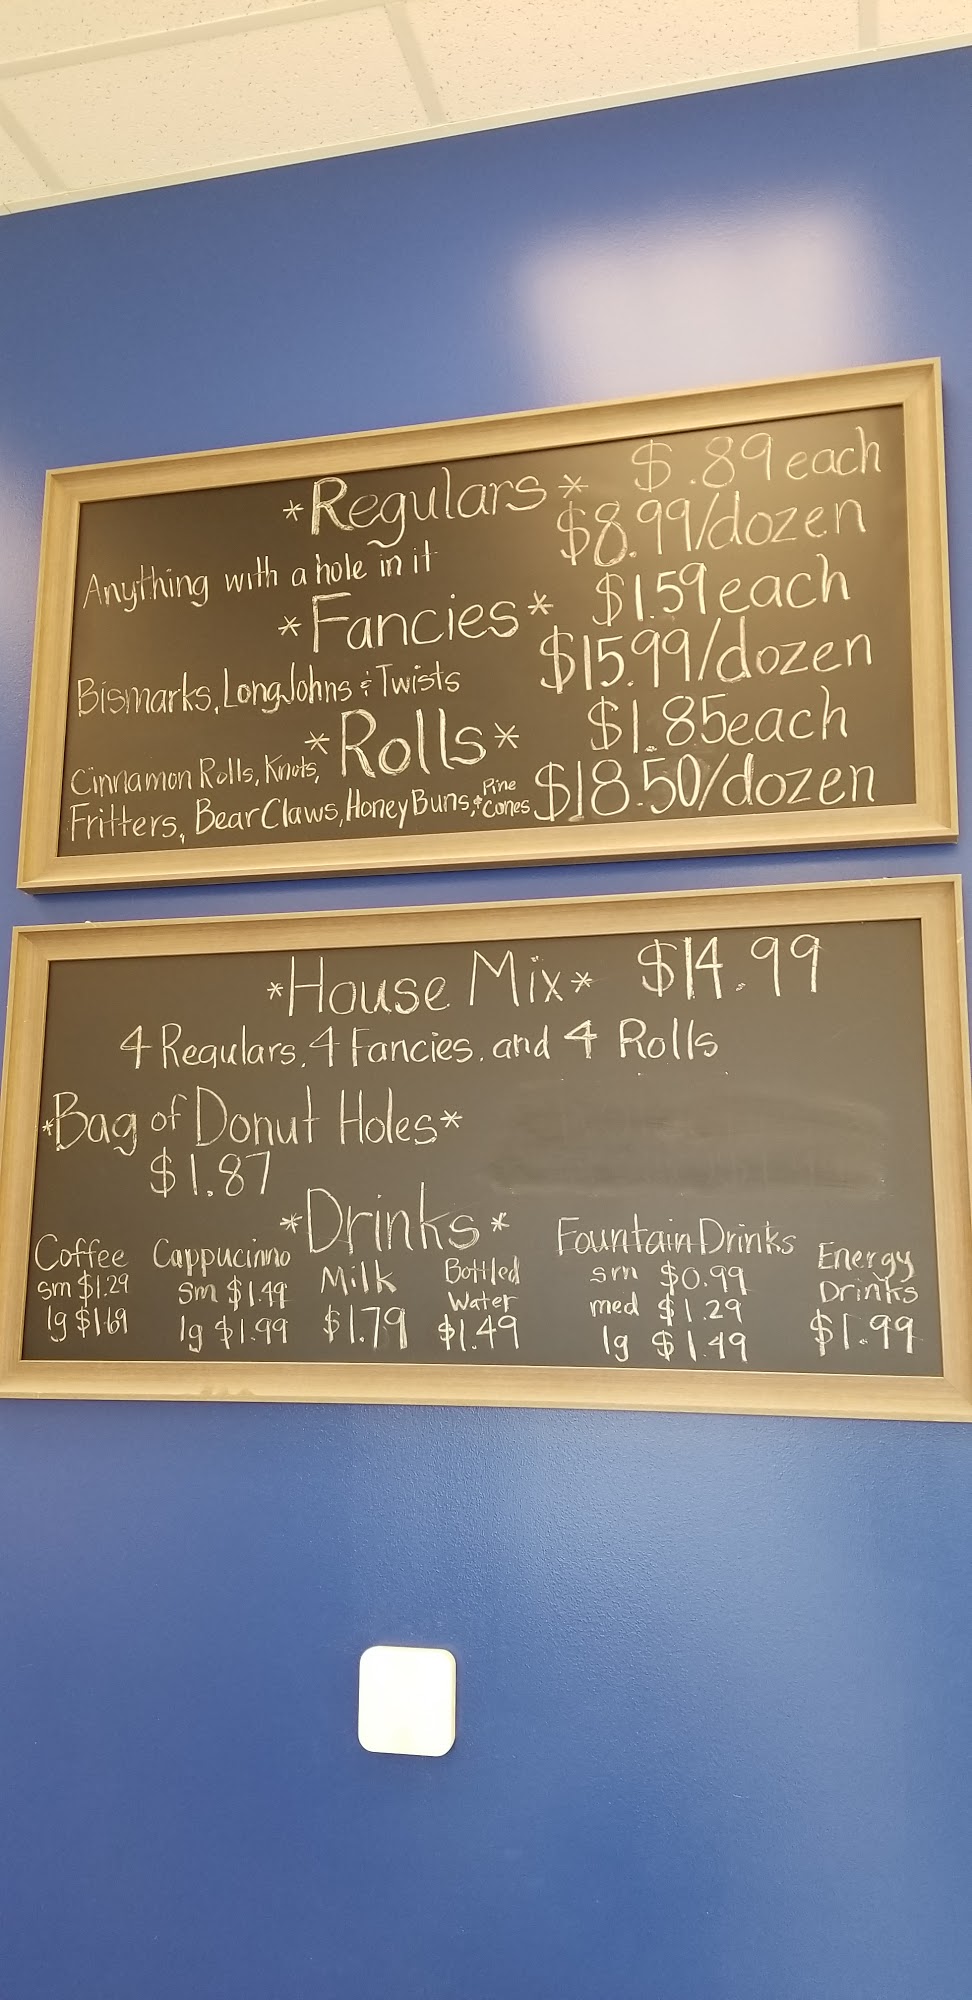 *Regulars* $.89 each
$8.99/dozen
Anything with a hole in it
*Fancies* $1.59 each
$15.99/dozen
Bismarks, Long Johns & Twists
*Rolls* $1.85 each
Cinnamon Rolls, Knots,
Fritters, Bear Claws, Honey Buns, & Pine Cones $18.50/dozen
*House Mix* $14.99
4 Regulars, 4 Fancies, and 4 Rolls
*Bag of Donut Holes*
$1.87
*Drinks*
Coffee
sm $1.29
lg $1.69
Cappucinno
sm $1.49
lg $1.99
Milk
$1.79
Bottled
Water
$1.49
Fountain Drinks
sm $0.99
med $1.29
lg $1.49
Energy
Drinks
$1.99